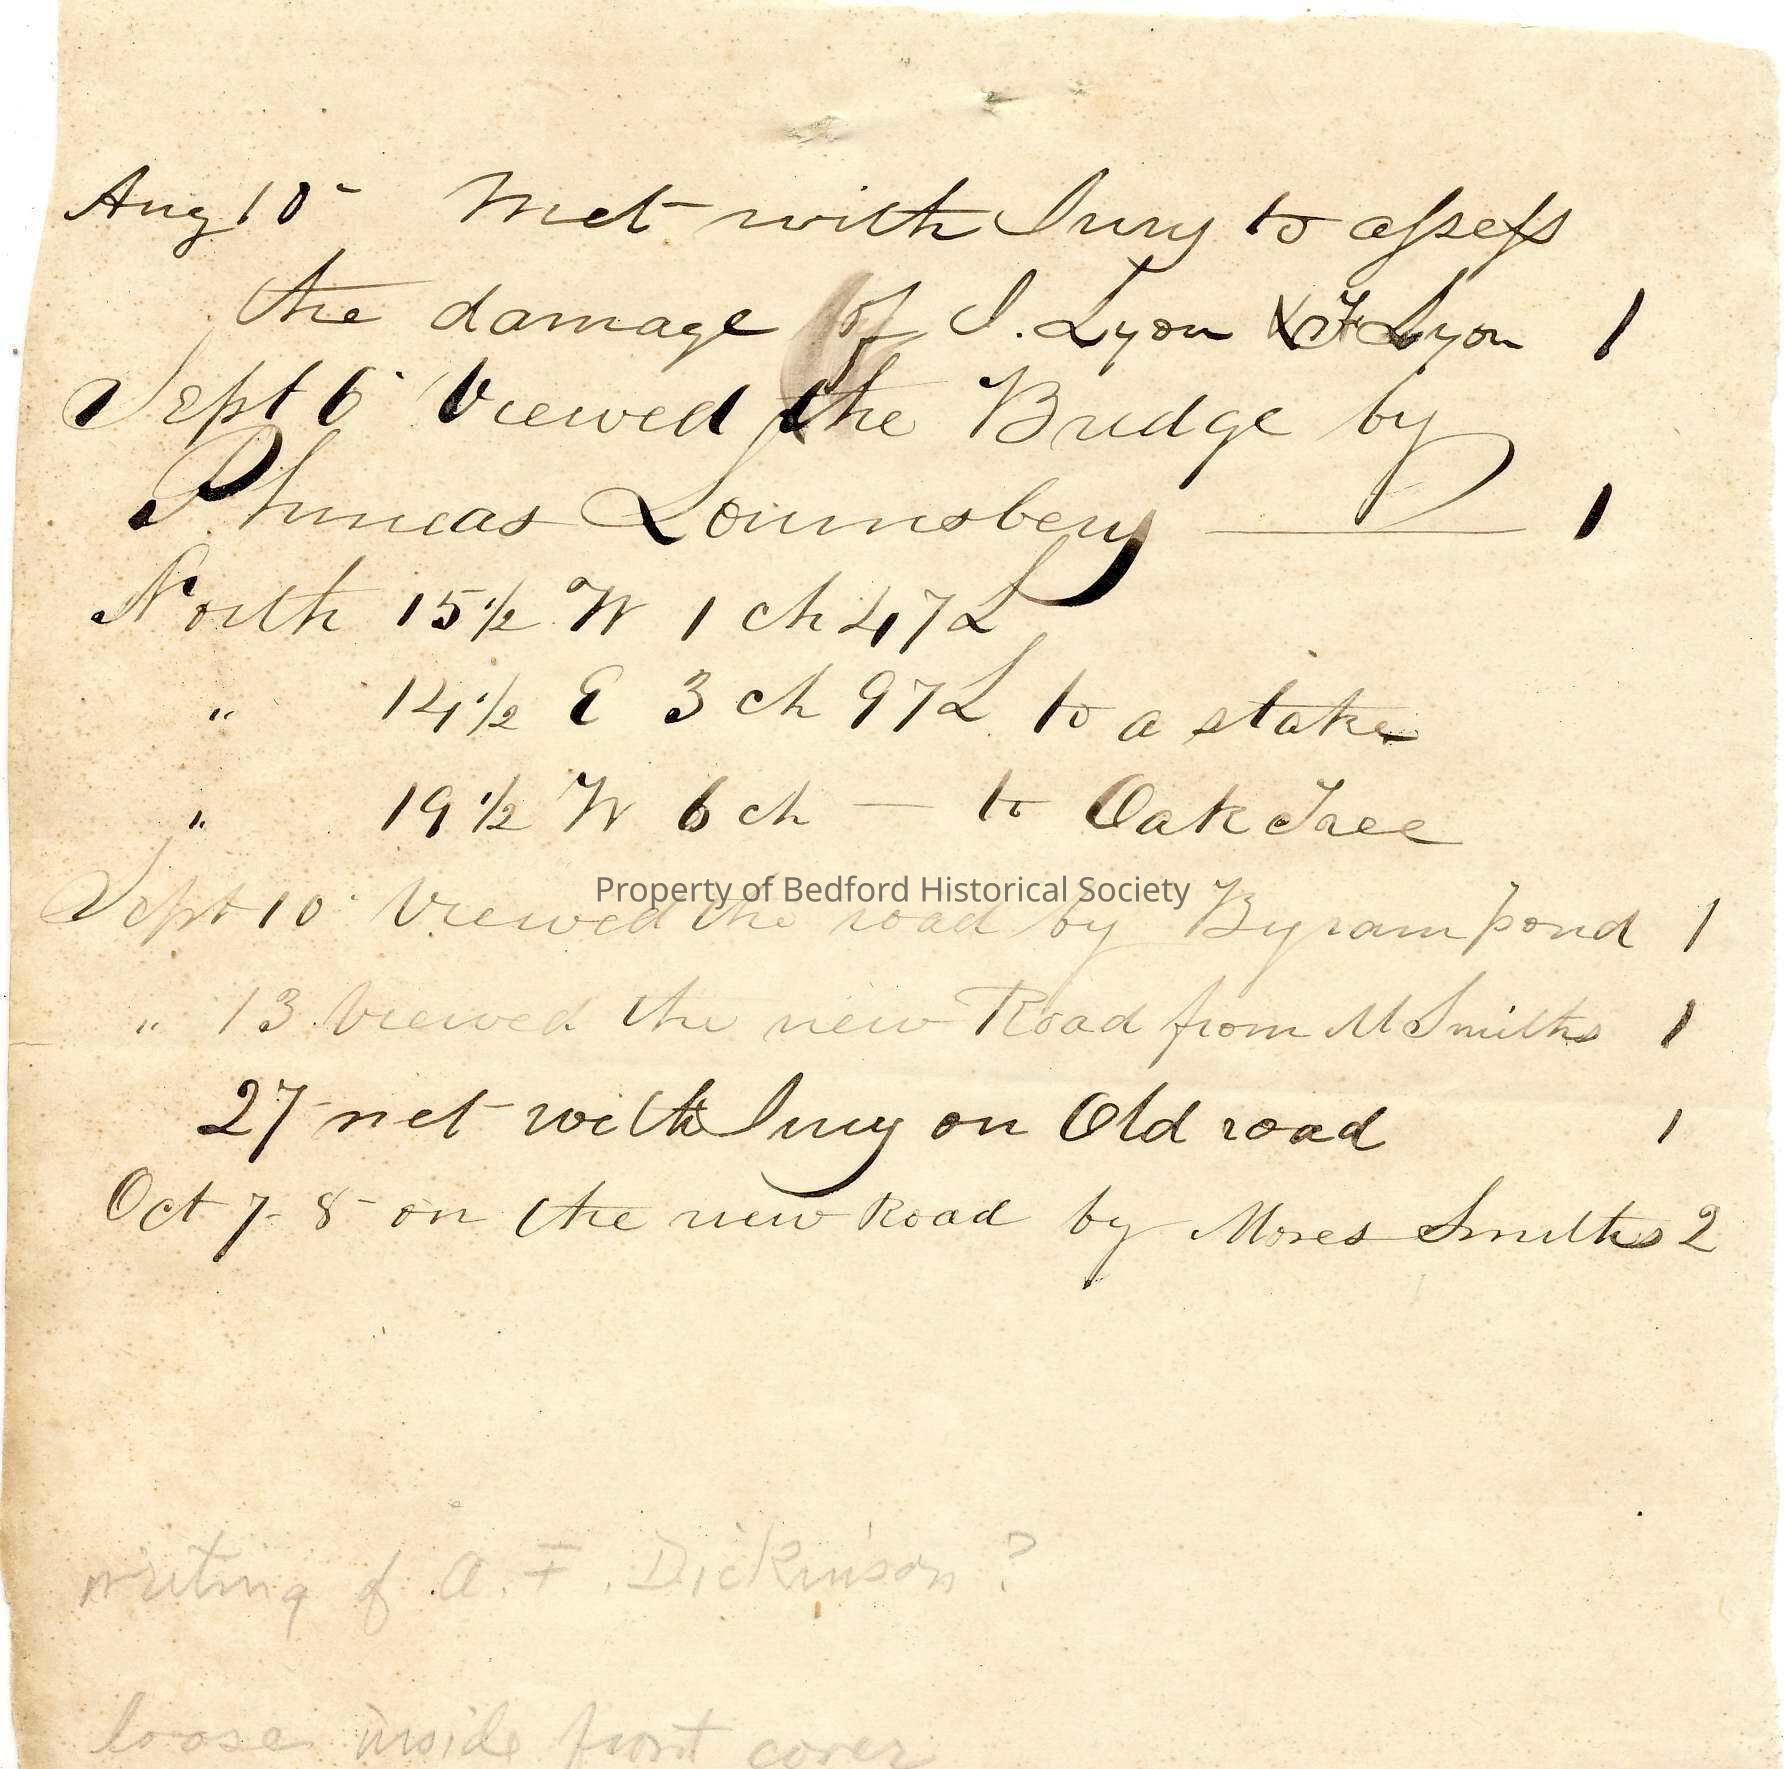 Aug 10 Met with Jury to assess
the damage of I. Lyon & F Lyon 1
Sept 6 Viewed the Bridge by
Phineas Lounsbery — 1
North 15 1/2 W 1 ch 47 L
" 14 1/2 E 3 ch 97 L to a stake
" 19 1/2 W 6 ch — to Oak Tree
Property of Bedford Historical Society
Sept 10 Viewed the road by Byram pond 1
" 13 Viewed the new Road from M Smiths 1
27 met with Jury on Old road 1
Oct 7-8 on the new Road by Moses Smiths 2
writing of A. F. Dickinson ?
loose inside front cover